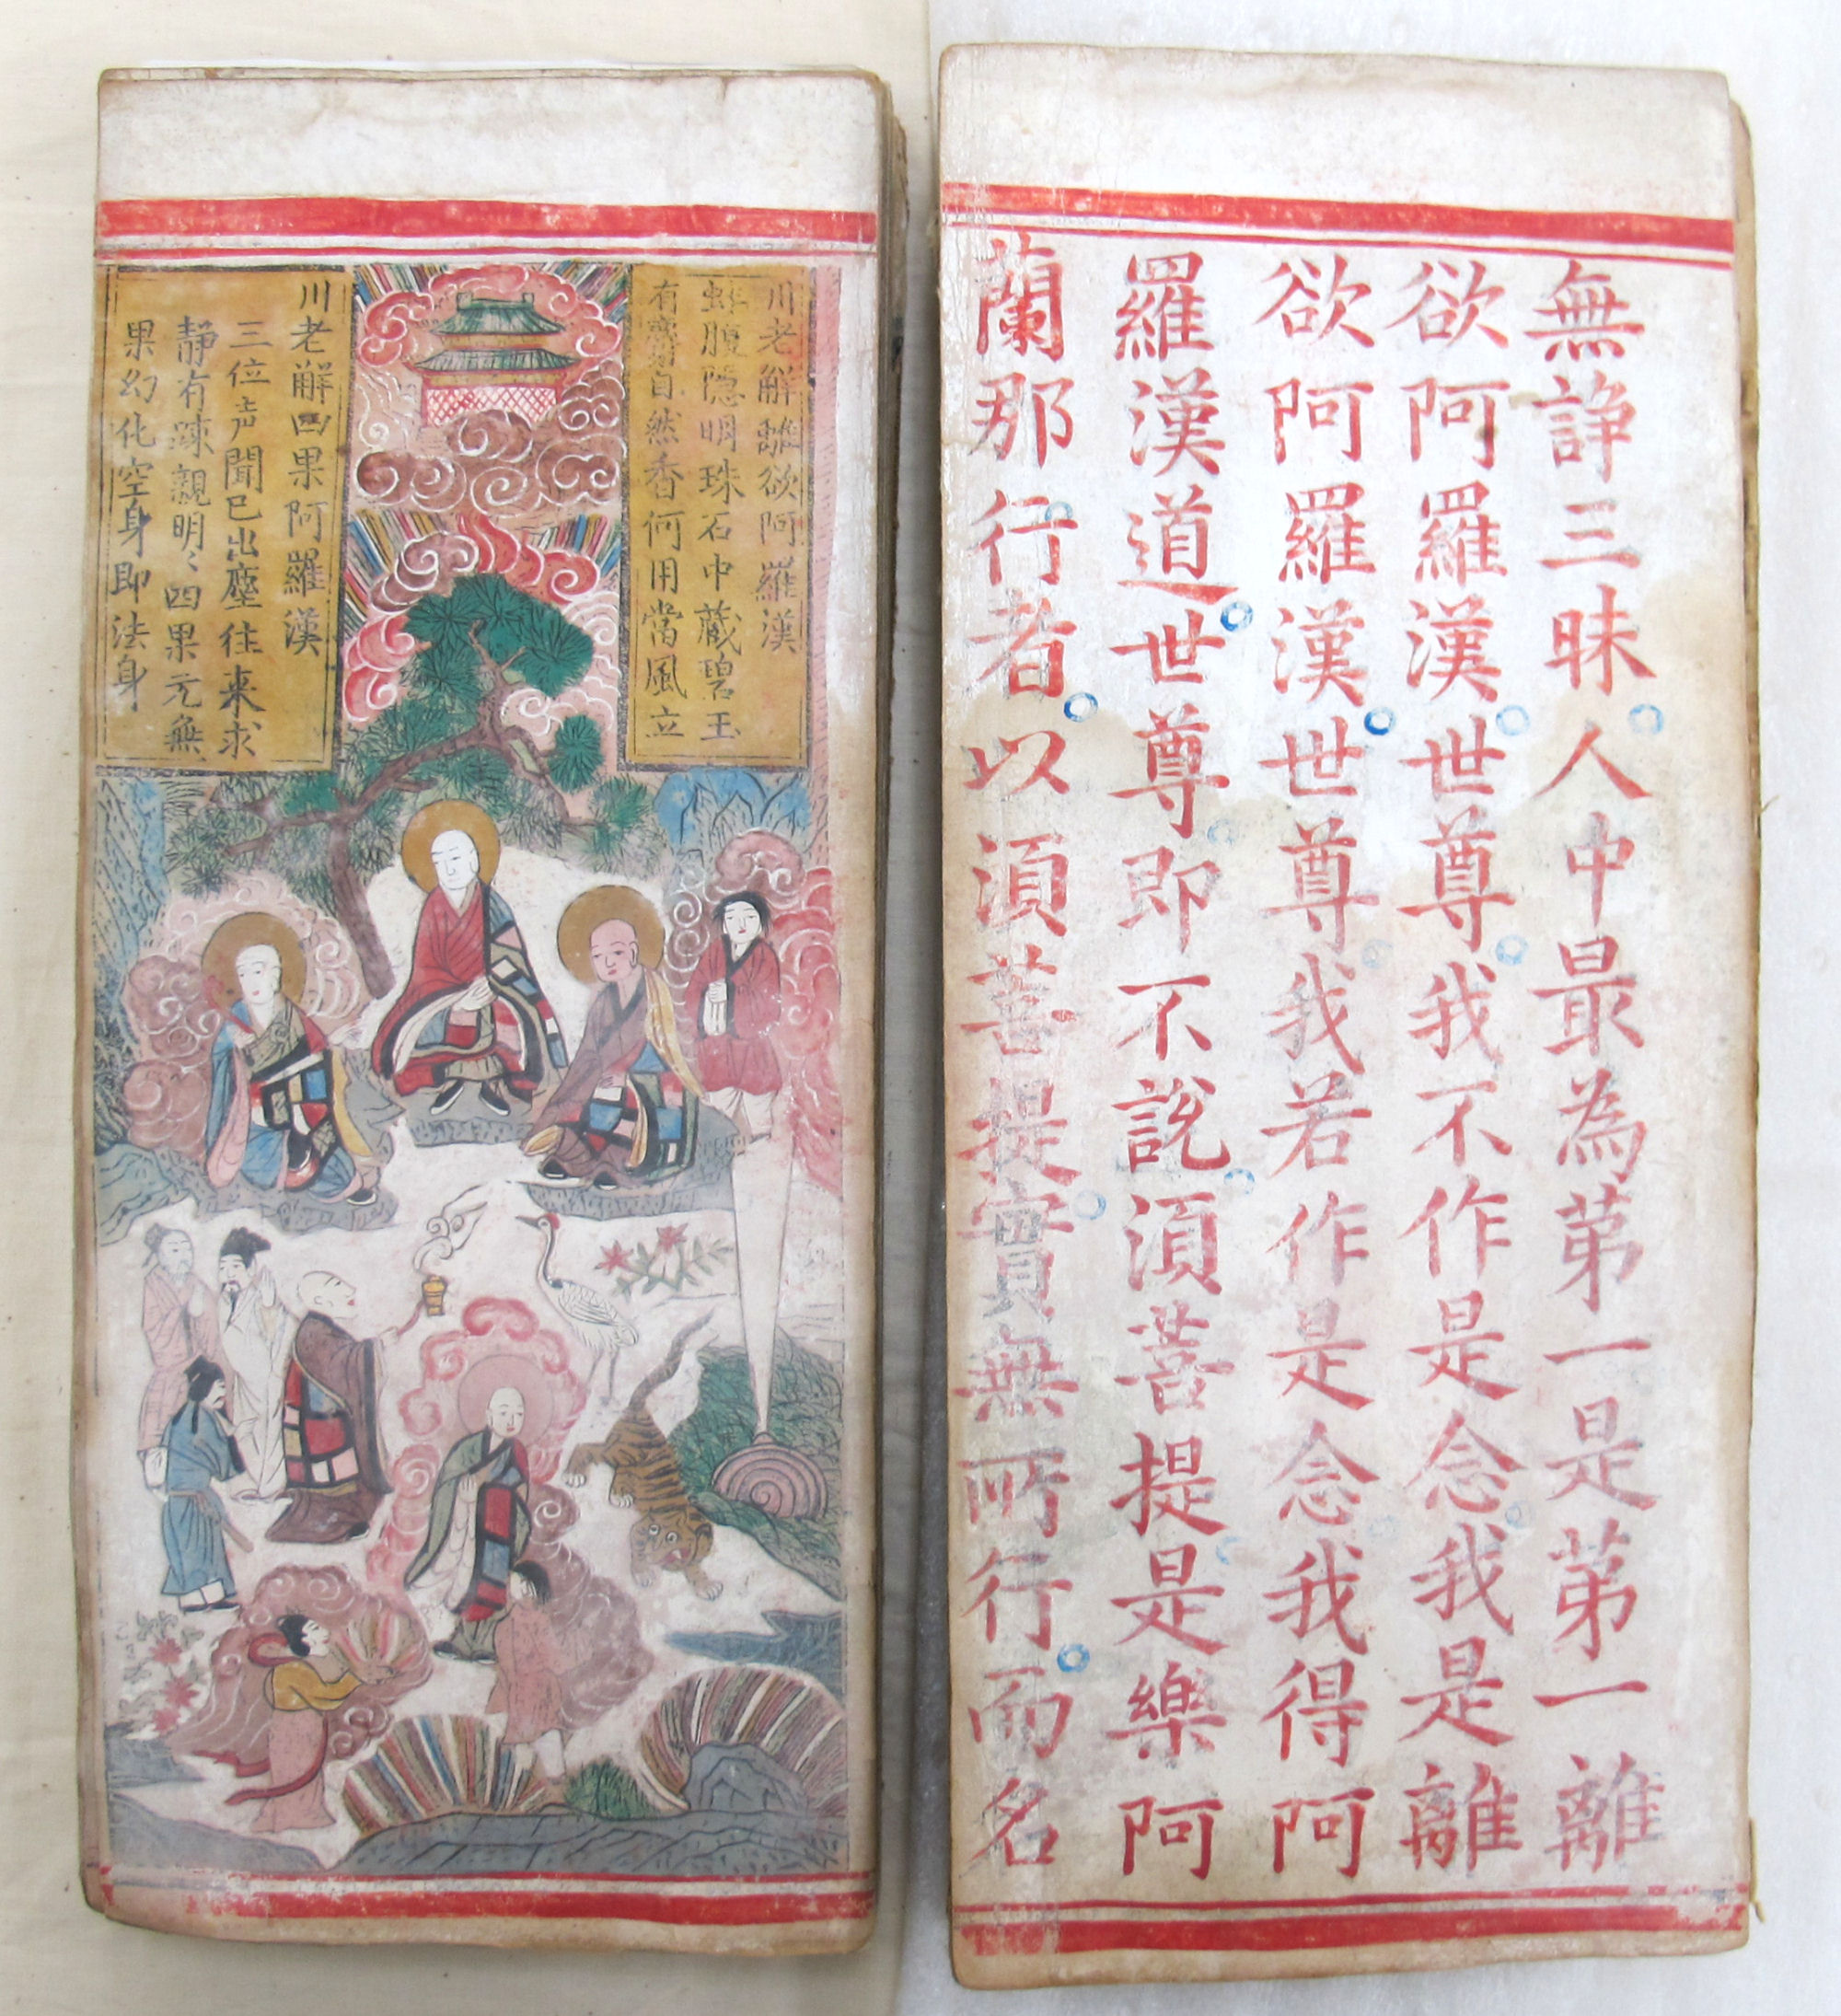 無諍三昧。人中最為苐一是苐一離
欲阿羅漢。世尊。我不作是念。我是離
欲阿羅漢。世尊。我若作是念。我得阿
羅漢道。世尊。即不說。須菩提。是樂阿
蘭那行者。以須菩提。實無所行。而名
川老解離欲阿羅漢
蚌腹隐明珠石中藏碧玉
有麝自然香何用當風立
川老解四果阿羅漢
三位声聞已出塵往来求
靜有踈親明〻四果元無
果幻化空身即法身